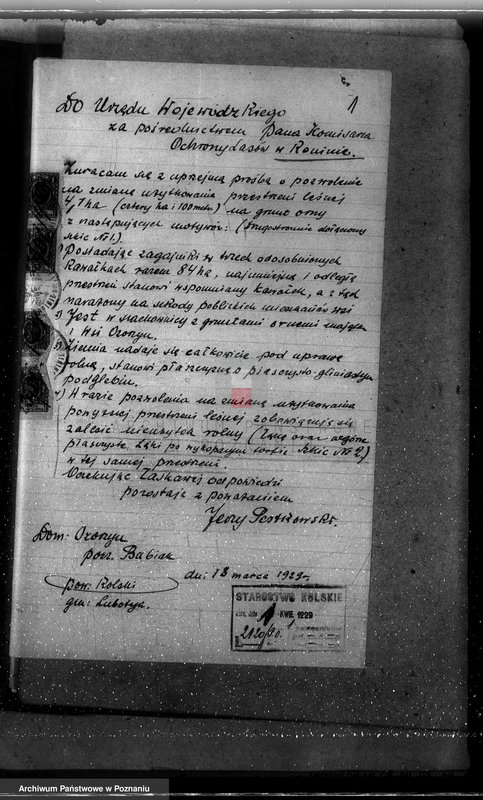 1
Do Urzędu Wojewódzkiego
za pośrednictwem Pana Komisarza
Ochrony Lasów w Koninie.
Zwracam się z uprzejmą prośbą o pozwolenie
na zmianę użytkowania przestrzeni leśnej
4,1 ha (cztery ha i 100 metr.) na grunt orny
z następujących motywów: (drugostronnie dołączony
szkic № 1.)
Posiadając zagajniki w trzech odosobnionych
kawałkach razem 84 ha, najmniejszą i odległą
przestrzeń stanowi wspomniany kawałek, a z tąd
narażony na szkody pobliskich mieszkańców wsi
2) Jest w szachownicy z gruntami ornemi majątku
i wsi Ozorzyn.
3) Ziemia nadaje się całkowicie pod uprawę
rolną, stanowi płaszczyznę o piaszczysto gliniastym
podglebiu.
4) W razie pozwolenia na zmianę użytkowania
powyższej przestrzeni leśnej zobowiązuję się
zalesić nieużytek rolny (
oraz
piaszczyste. Łąki po wykopanym torfie szkic № 2)
w tej samej przestrzeni.
Oczekując łaskawej odpowiedzi
pozostaję z poważaniem
Jerzy
Dom: Ozorzyn
pocz. Babiak
pow. Kolski
gm: Lubotyń.
dn: 18 marca 1929 r.
STAROSTWO KOLSKIE
1 KWI. 1929
Archiwum Państwowe w Poznaniu